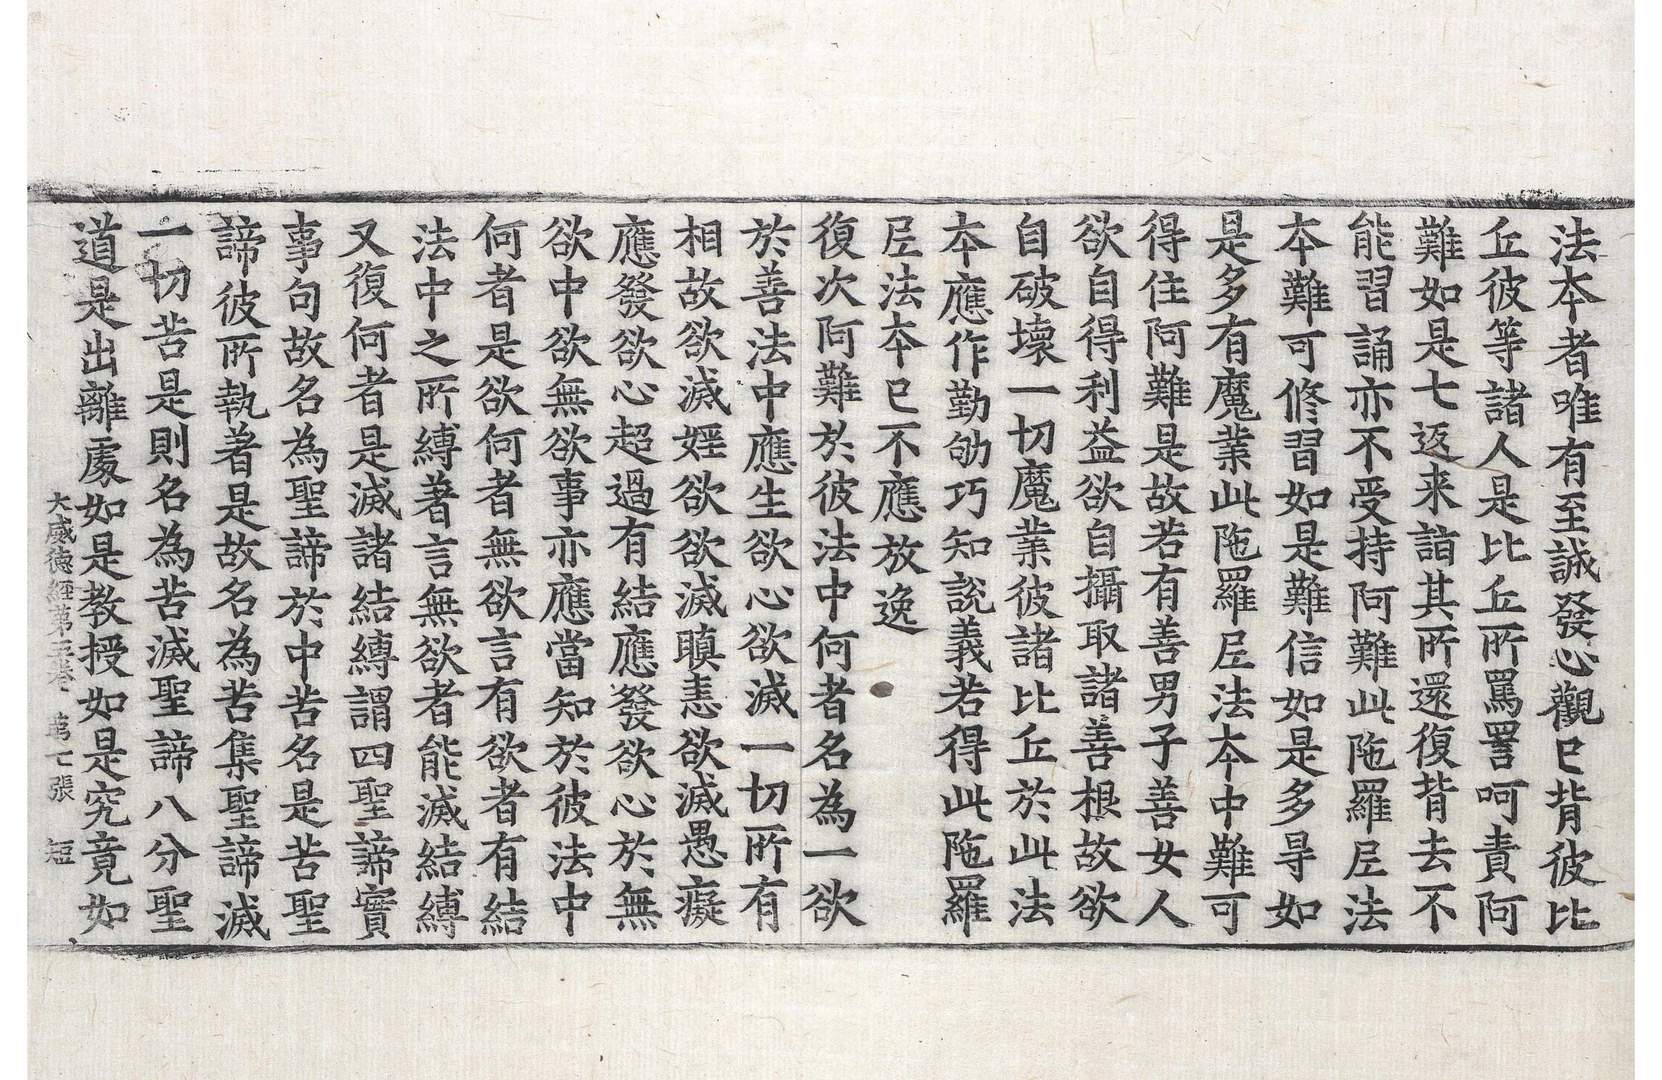 法本者唯有至誠發心觀已背彼比
丘彼等諸人是比丘所罵詈呵責阿
難如是七返来詣其所還復背去不
能習誦亦不受持阿難此陁羅𡰱法
本難可修習如是難信如是多㝵如
是多有魔業此陁羅𡰱法本中難可
得住阿難是故若有善男子善女人
欲自得利益欲自攝取諸善根故欲
自破壞一切魔業彼諸比丘於此法
本應作勤劬巧知說義若得此陁羅
𡰱法本已不應放逸
復次阿難於彼法中何者名為一欲
於善法中應生欲心欲滅一切所有
相故欲滅婬欲欲滅瞋恚欲滅愚癡
應發欲心超過有結應發欲心於無
欲中欲無欲事亦應當知於彼法中
何者是欲何者無欲言有欲者有結
法中之所縛著言無欲者能滅結縛
又復何者是滅諸結縛謂四聖諦實
事句故名為聖諦於中苦名是苦聖
諦彼所執著是故名為苦集聖諦滅
一切苦是則名為苦滅聖諦八分聖
道是出離處如是教授如是究竟如
大威德經第五卷 第七張 短